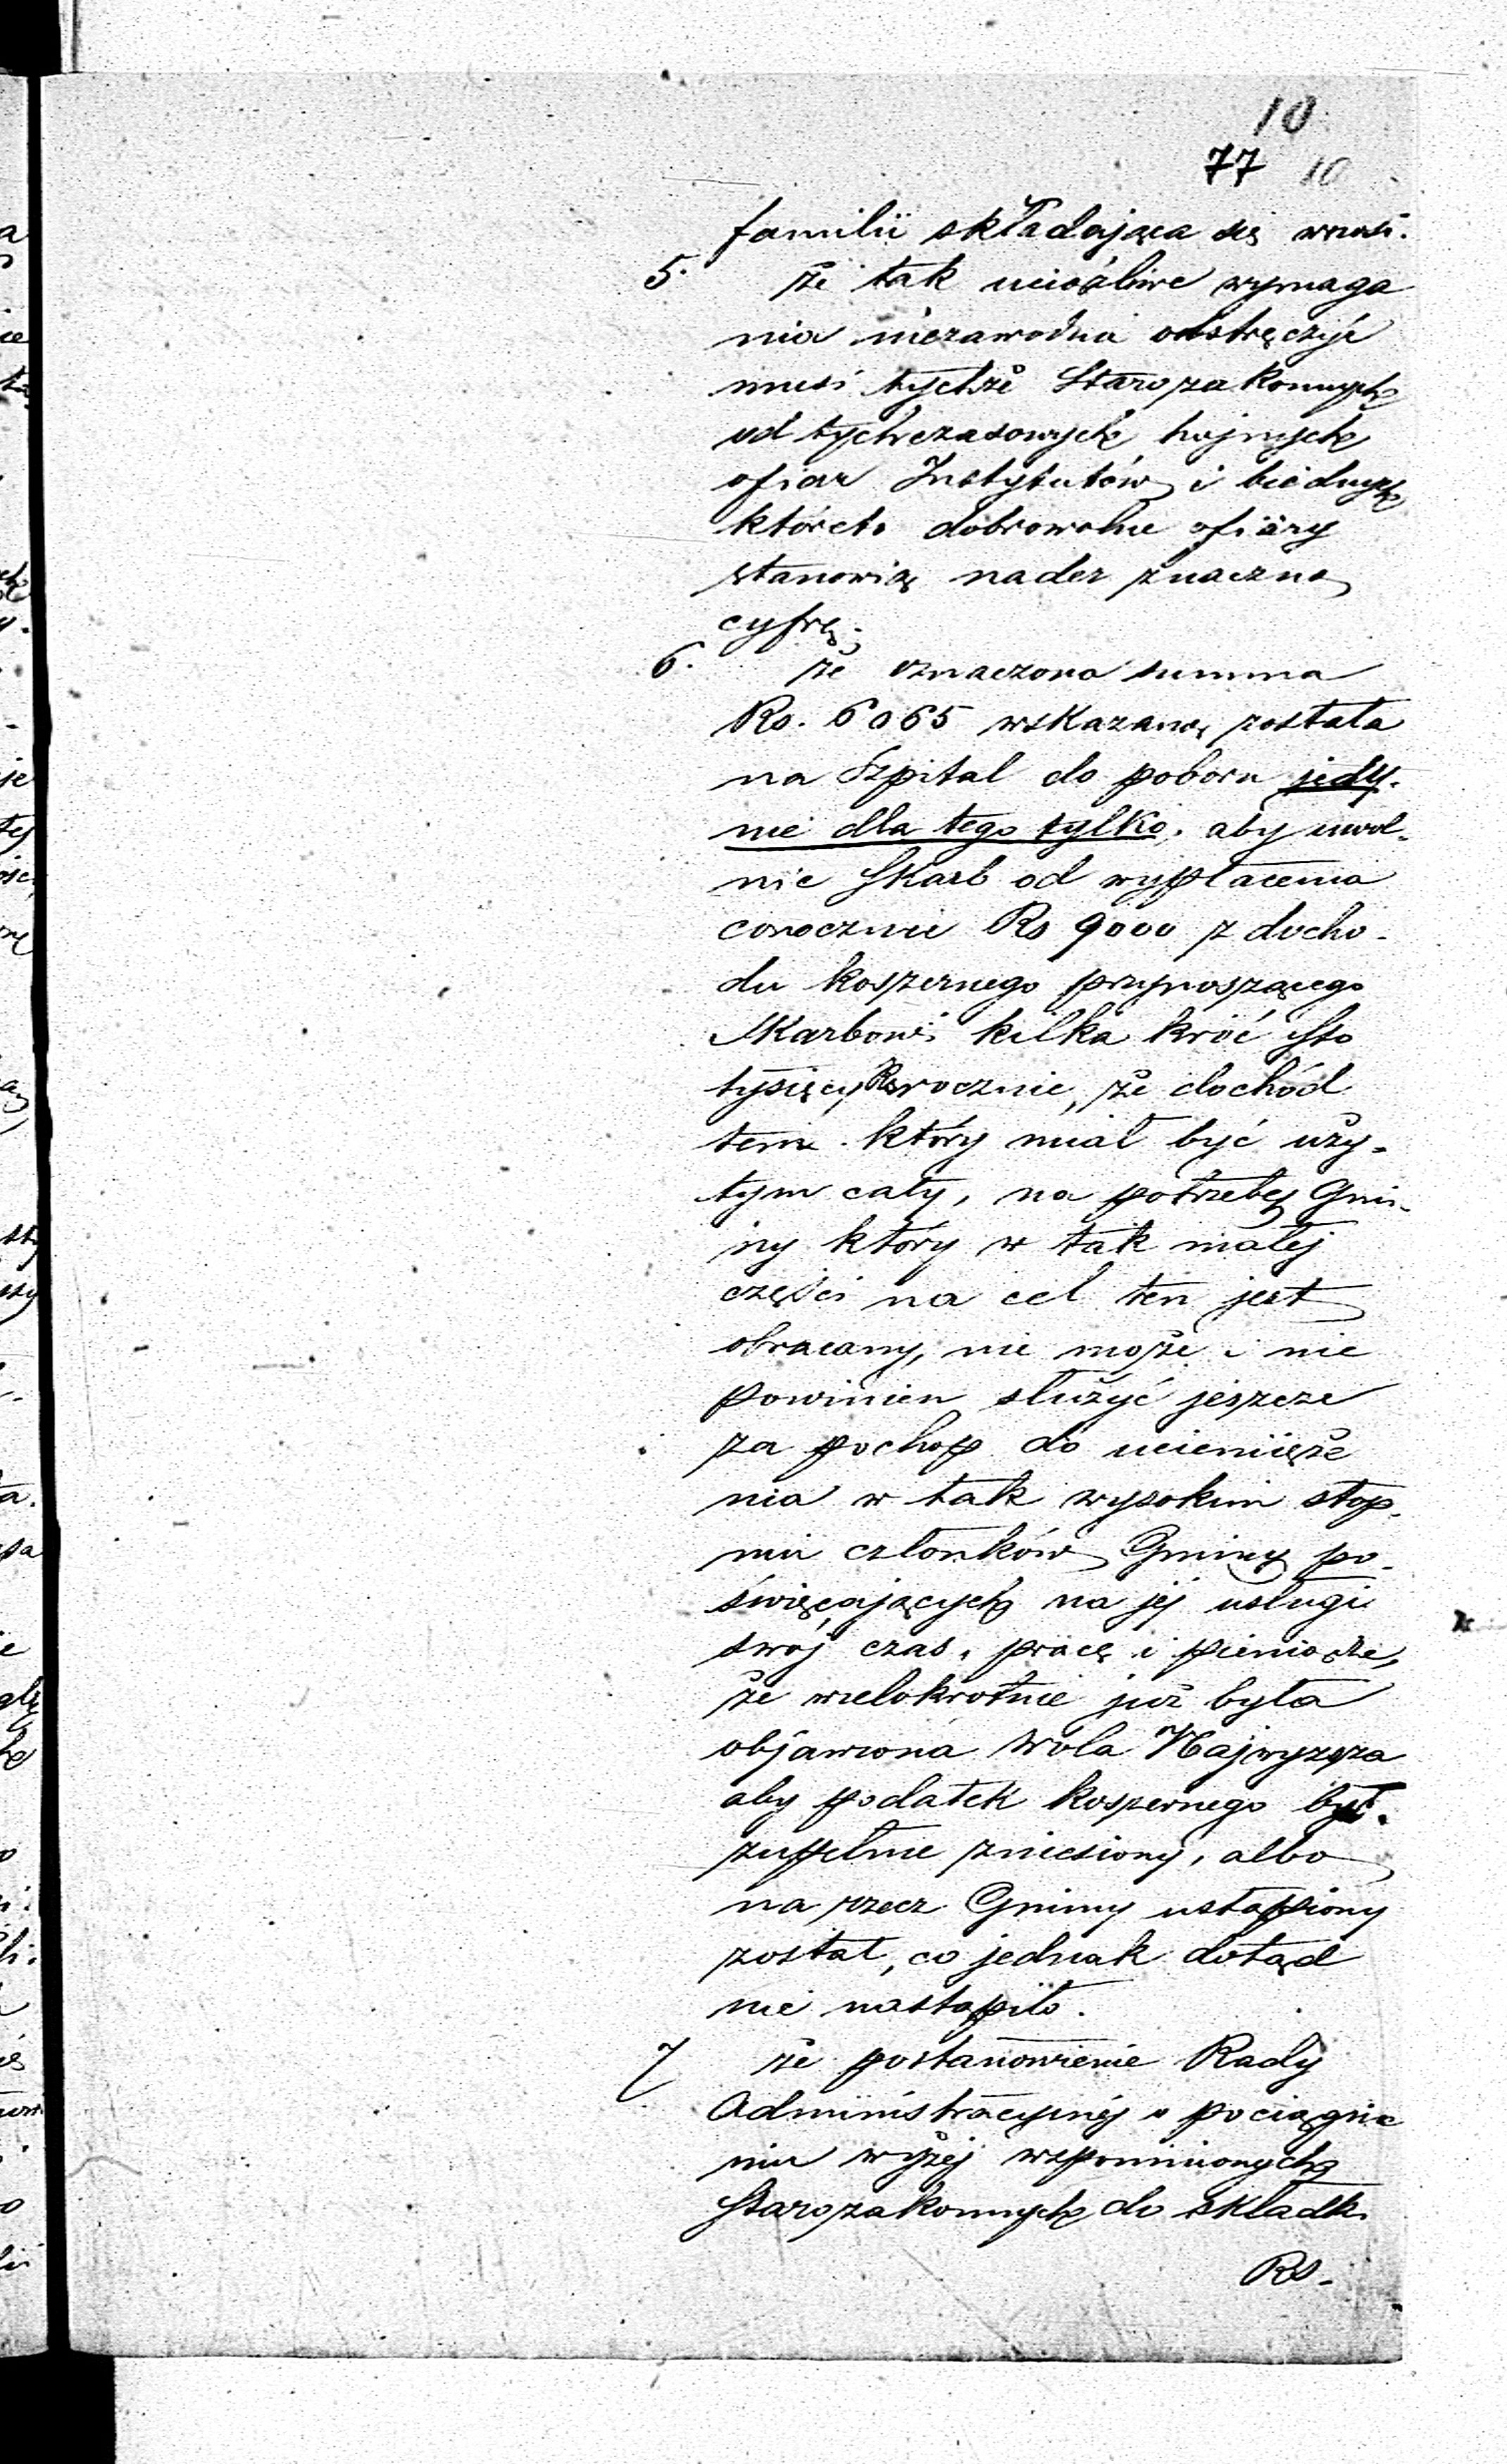 10
77 10
familii składająca się wnosi.
5. że tak uciążliwe wymaga
nia niezawodnie odstręczyć
musi tychże Starozakonnych
od tychczasowych hojnych
ofiar Instytutów i biednych
któreto dobrowolne ofiary
stanowią nader znaczną
cyfrę;
6. że oznaczona summa
Rs. 6065 wskazaną została
na Szpital do poboru jedy-
nie dla tego tylko, aby uwol-
nić Skarb od wypłacenia
corocznie Rs 9000 z docho-
du koszernego przynoszącego
Skarbowi kilka kroć sto
tysięcy Rs rocznie, że dochód
ten który miał być uży-
tym cały, na potrzeby Gmi-
ny który w tak małej
części na cel ten jest
obracany, nie może i nie
powinien służyć jeszcze
za pochop do uciemięże
nia w tak wysokim stop-
niu członków Gminy po-
święcających na jej usługi
swój czas, pracę i pieniądze,
że wielokrotnie już była
objawiona Wola Najwyższa
aby podatek koszernego był
zupełnie zniesiony, albo
na rzecz Gminy ustąpiony
został, co jednak dotąd
nie nastąpiło.
7 że postanowienie Rady
Administracyjnéj o pociągnie
niu wyżej wspomnionych
Starozakonnych do składki
Rs.